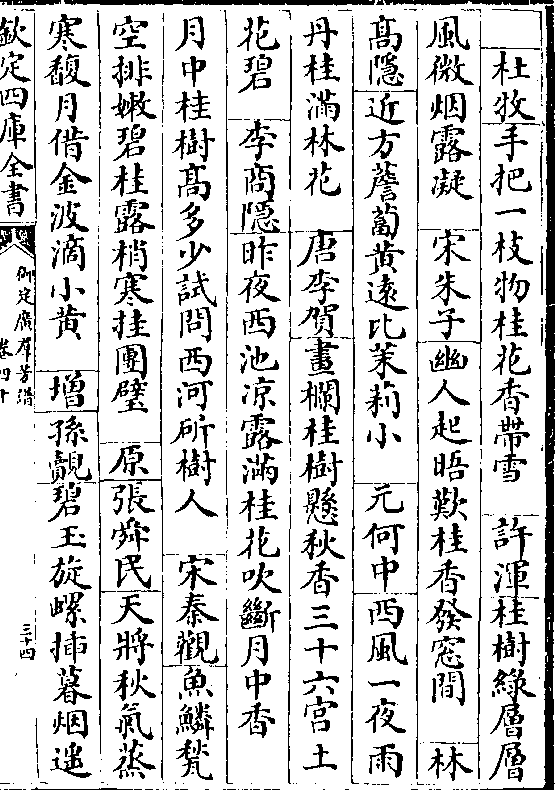 杜牧手把一枝物桂花香帶雪　許渾桂樹綠層層
風微烟露凝　宋朱子幽人起晤歎桂香發窓間　林
髙隠近方薝蔔黄逺比茉莉小　元何中西風一夜雨
丹桂滿林花　唐李賀畫欄桂樹懸秋香三十六宫土
花碧　李商隠昨夜西池凉露滿桂花吹斷月中香
月中桂樹髙多少試問西河斫樹人　宋秦觀魚鱗甃
空排嫩碧桂露梢寒挂團璧　原張舜民天將秋氣蒸
寒馥月借金波滴小黄　増孫覿碧玉旋螺揷暮烟遥
欽定四庫全書
御定廣羣芳譜
卷四十
三十四